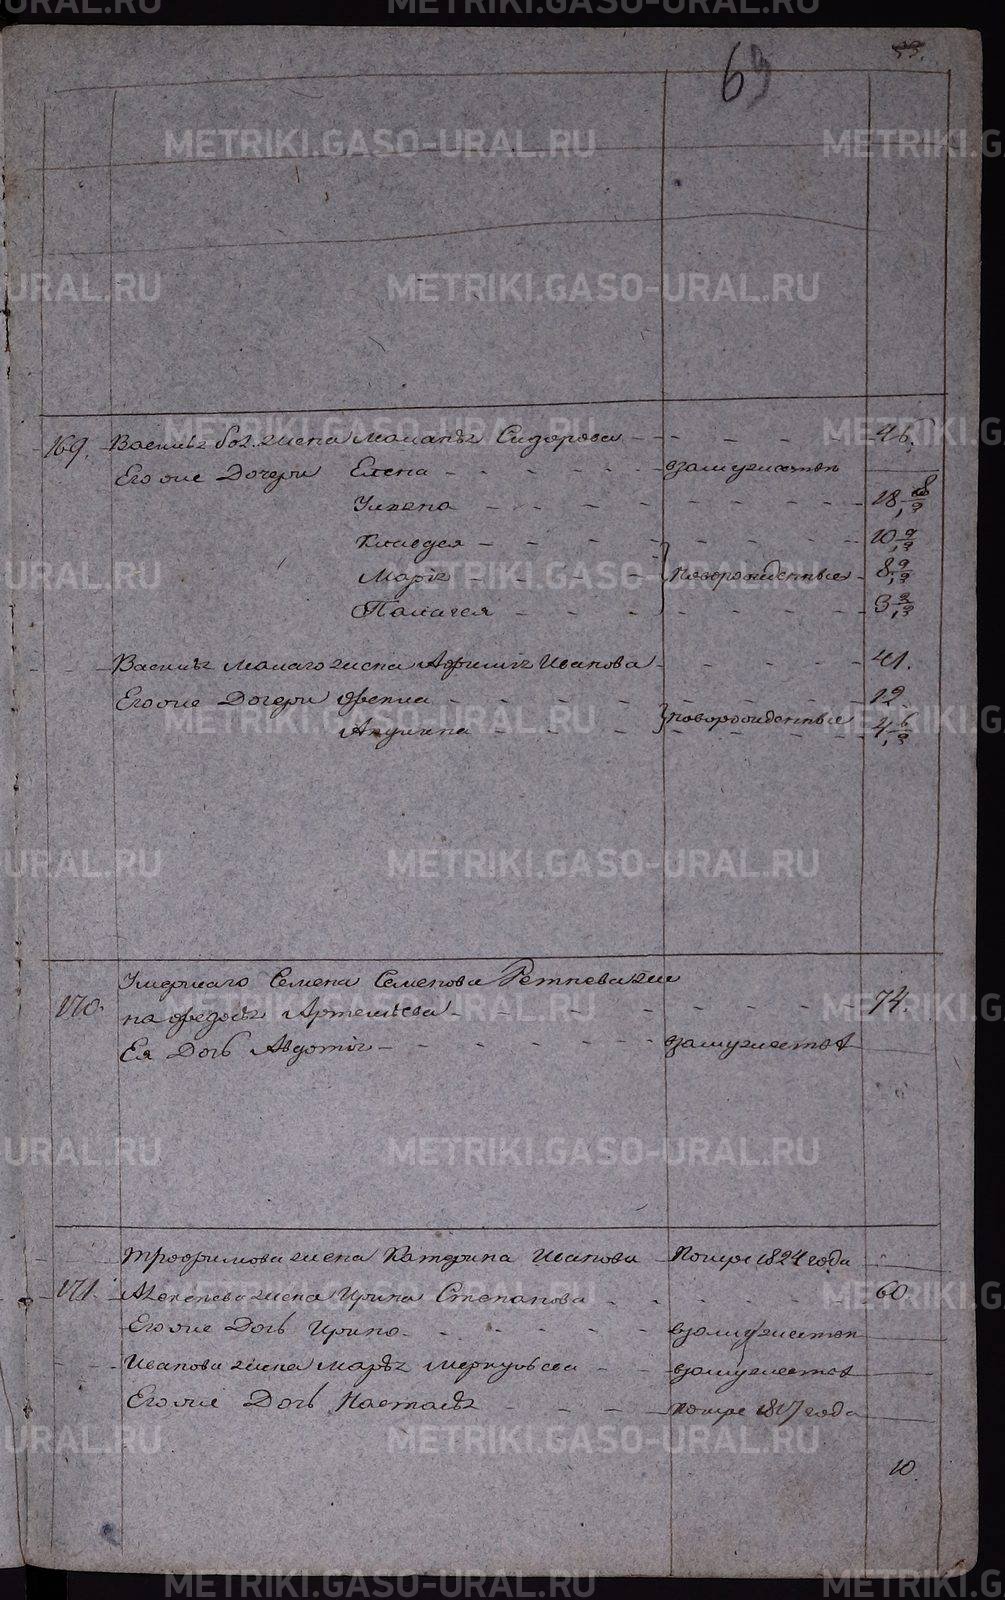 53.
69
169. Василья бол. жена Маланья Сидорова 46.
Его же Дочери Елена взамужестве
Ульяна 18,
Клавдея 10,
Марья новорожденные 8,
Палагея 3,
Василья малаго жена Афимья Иванова 41.
Его же Дочери Фекла 12.
Акулина новорожденные 4,
Умершаго Семена Семенова жена
170. Федосья Артемьева 74.
Ея Дочь Авдотья взамужестве
Трофимова жена Катерина Иванова Помре 1824 года
171. Алексеева жена Ирина Степанова 60
Его же Дочь Ирина взамужестве
Иванова жена Марья Меркурьева взамужестве
Его же Дочь Настасья помре 1817 года
10.
METRIKI.GASO-URAL.RU